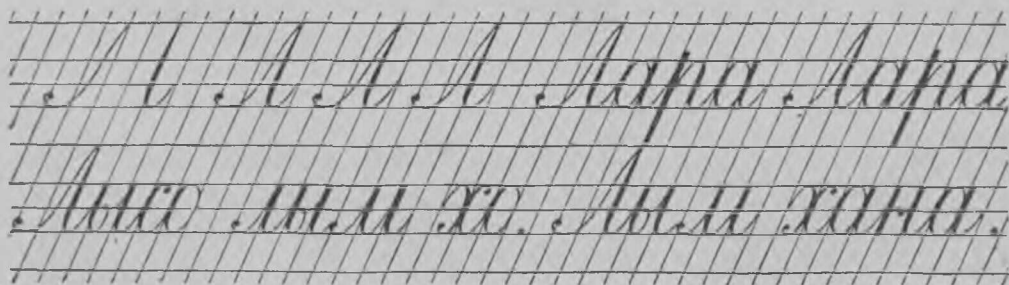 Л Л Л Л Лара Лара
лыли хо. Лыли хана.